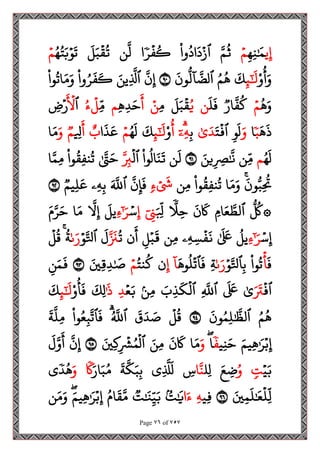 إِيمَٰنِهِمْ ثُمَّ ٱزْدَادُوا۟ كُفْرًا لَّن تُقْبَلَ تَوْبَتُهُمْ
وَأُو۟لَٰٓئِكَ هُمُ ٱلضَّآلُّونَ ٩٠ إِنَّ ٱلَّذِينَ كَفَرُوا۟ وَمَاتُوا۟
وَهُمْ كُفَّارٌ فَلَن يُقْبَلَ مِنْ أَحَدِهِم مِّلْءُ ٱلْأَرْضِ
ذَهَبًا وَلَوِ ٱفْتَدَىٰ بِهِۦٓ ۗ أُو۟لَٰٓئِكَ لَهُمْ عَذَابٌ أَلِيمٌ وَمَا
لَهُم مِّن نَّٰصِرِينَ ٩١ لَن تَنَالُوا۟ ٱلْبِرَّ حَتَّىٰ تُنفِقُوا۟ مِمَّا
تُحِبُّونَ ۚ وَمَا تُنفِقُوا۟ مِن شَىْءٍ فَإِنَّ ٱللَّهَ بِهِۦ عَلِيمٌ ٩٢
۞ كُلُّ ٱلطَّعَامِ كَانَ حِلًّا لِّبَنِىٓ إِسْرَٰٓءِيلَ إِلَّا مَا حَرَّمَ
إِسْرَٰٓءِيلُ عَلَىٰ نَفْسِهِۦ مِن قَبْلِ أَن تُنَزَّلَ ٱلتَّوْرَىٰةُ ۗ قُلْ
فَأْتُوا۟ بِٱلتَّوْرَىٰةِ فَٱتْلُوهَآ إِن كُنتُمْ صَٰدِقِينَ ٩٣ فَمَنِ
ٱفْتَرَىٰ عَلَى ٱللَّهِ ٱلْكَذِبَ مِنۢ بَعْدِ ذَٰلِكَ فَأُو۟لَٰٓئِكَ
هُمُ ٱلظَّٰلِمُونَ ٩٤ قُلْ صَدَقَ ٱللَّهُ ۗ فَٱتَّبِعُوا۟ مِلَّةَ
إِبْرَٰهِيمَ حَنِيفًا ۖ وَمَا كَانَ مِنَ ٱلْمُشْرِكِينَ ٩٥ إِنَّ أَوَّلَ
بَيْتٍ وُضِعَ لِلنَّاسِ لَلَّذِى بِبَكَّةَ مُبَارَكًا وَهُدًى
لِّلْعَٰلَمِينَ ٩٦ فِيهِ ءَايَٰتٌۢ بَيِّنَٰتٌ مَّقَامُ إِبْرَٰهِيمَ ۖ وَمَن
Page ٧٦ of ٢٥٧